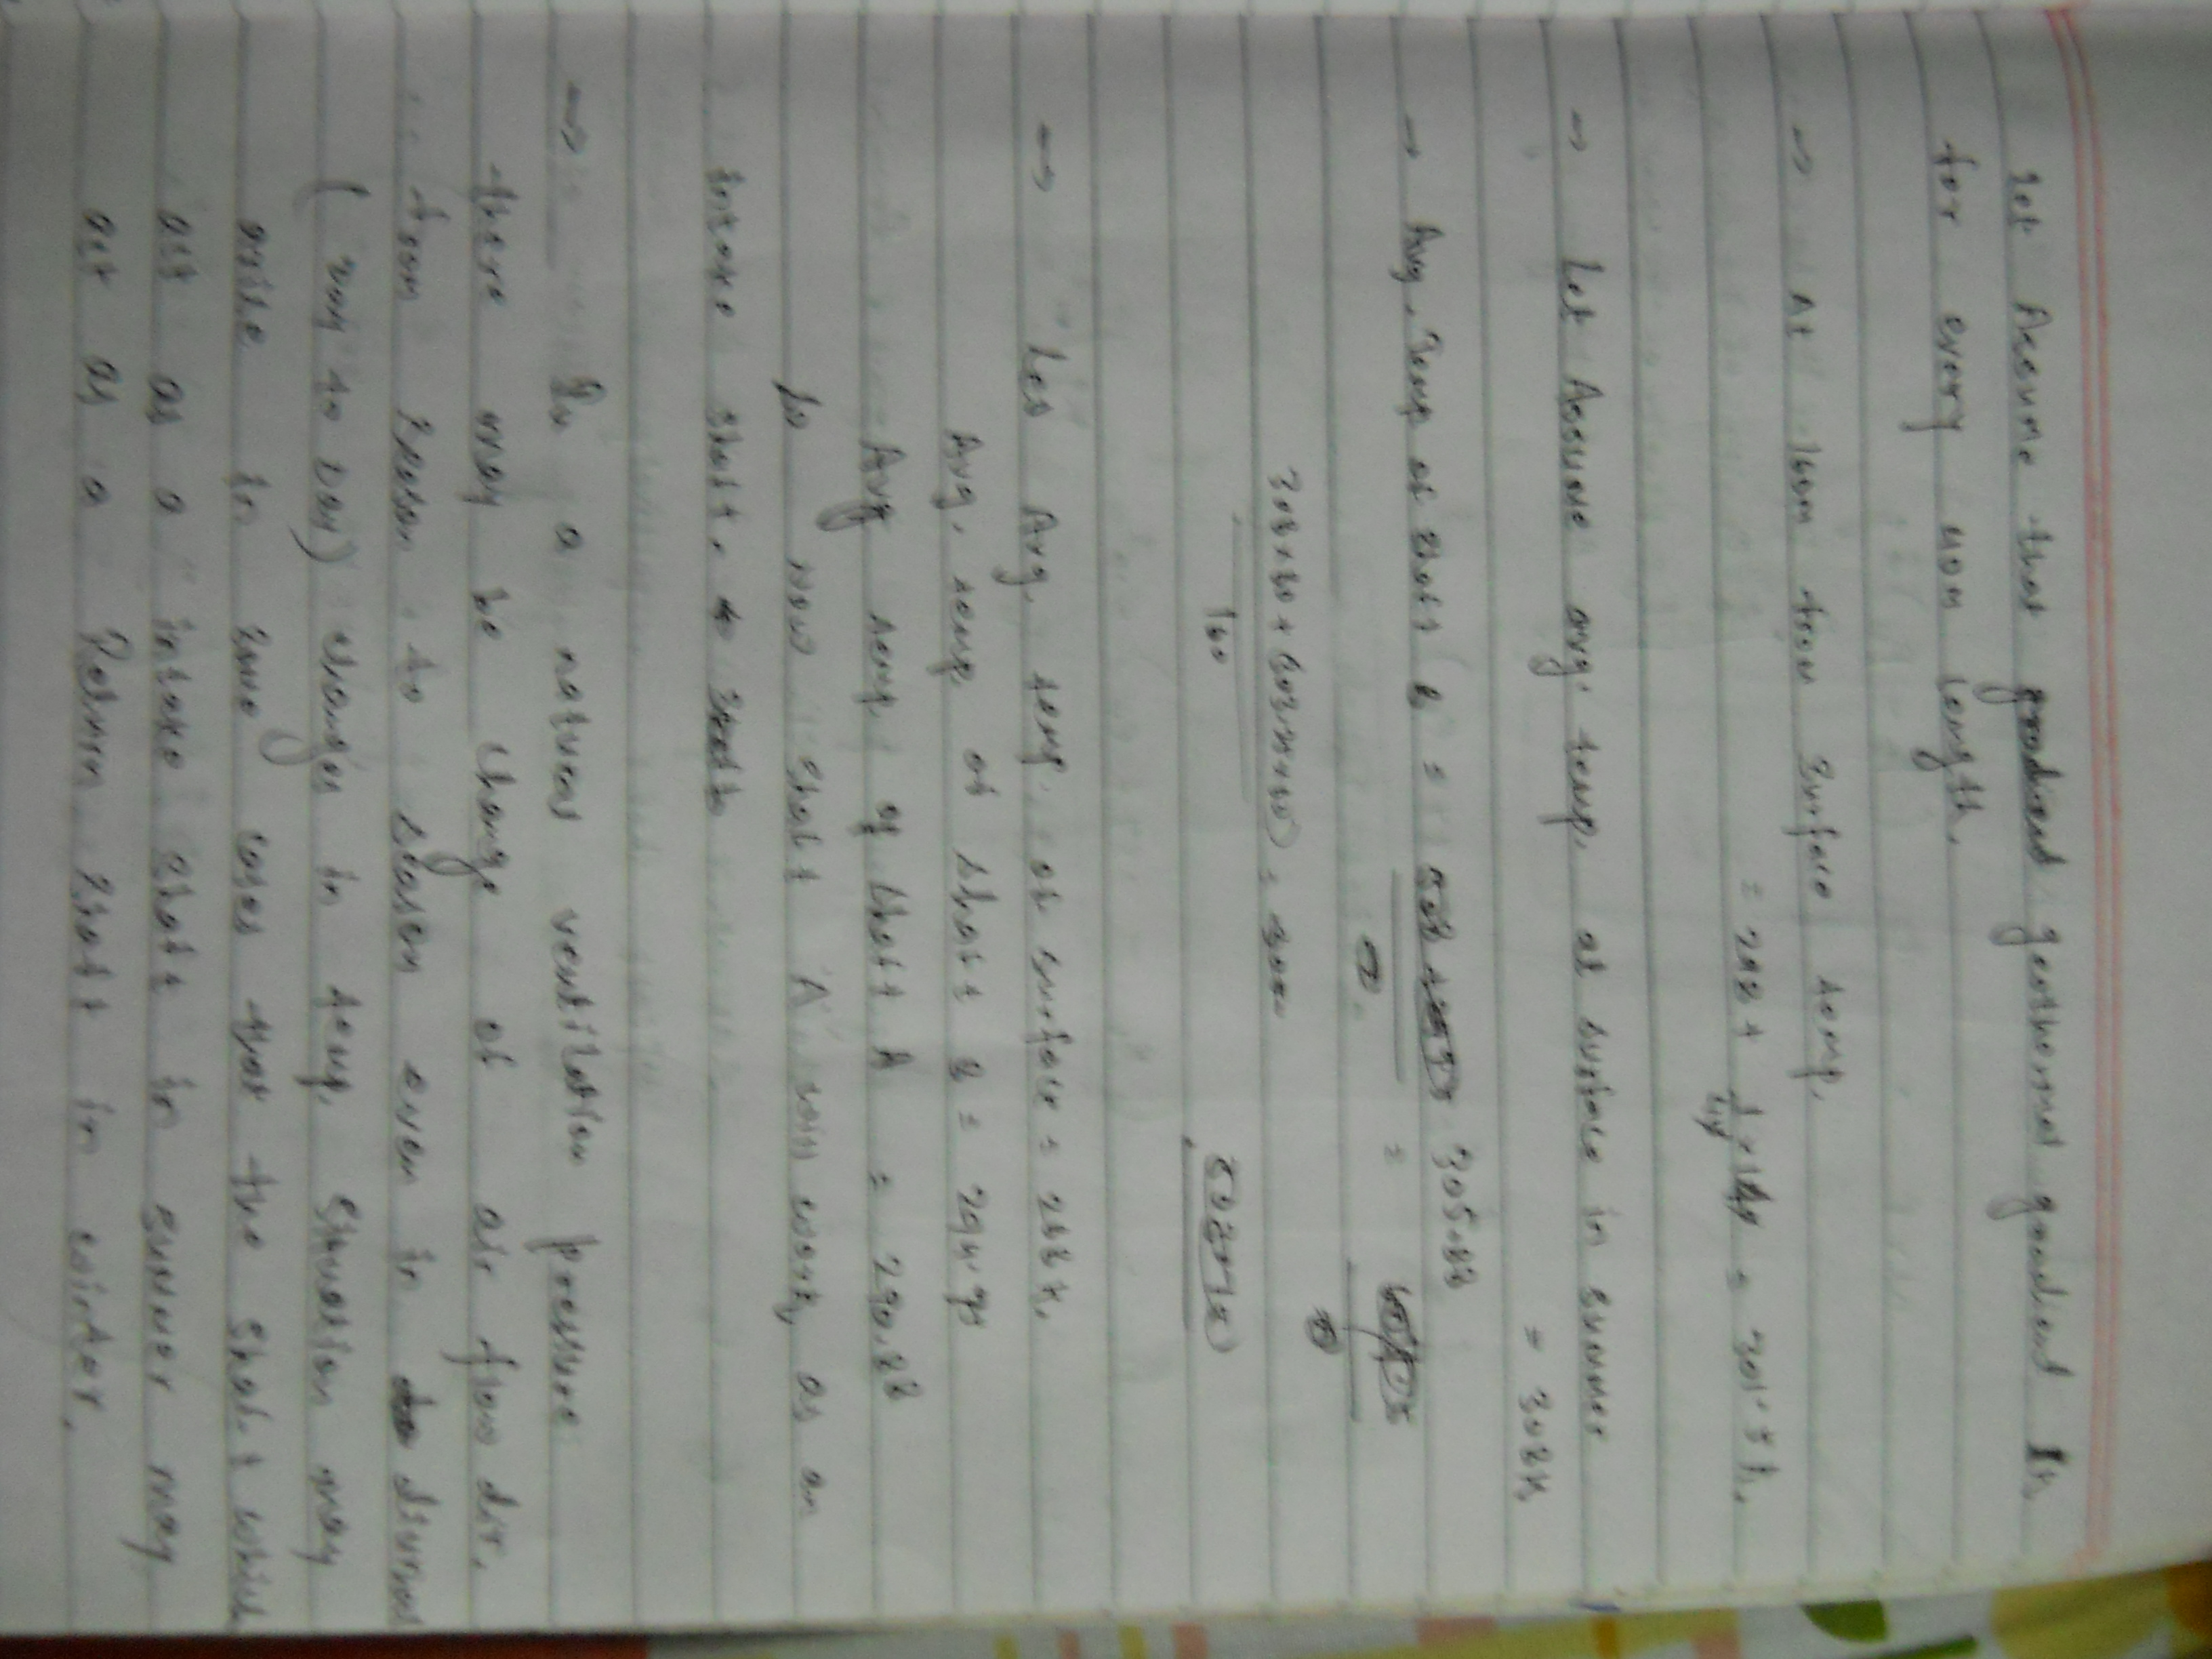 let Assume that geothermal gradient 1K
for every 40m length.
→ At 160m from surface temp.
= 298 + 1/40 × 160 = 301.
→ Let Assume avg. temp. at surface in summer
= 308K.
→ Avg. Temp of shaft B = 305.88
2
+ ( ) =
160
→ Let Avg. temp. at surface = 288K.
Avg. temp of shaft B = 294.94
Avg temp of shaft A = 290.88
So now shaft A will work as an
intake shaft.
→ In a natural ventilation pressure
there may be change of air flow dir.
from season to season even in diurnal
(day to day) changes in temp, situation may
arise in some cases that the shaft which
act as a intake shaft in summer may
act as a Return shaft in winter.